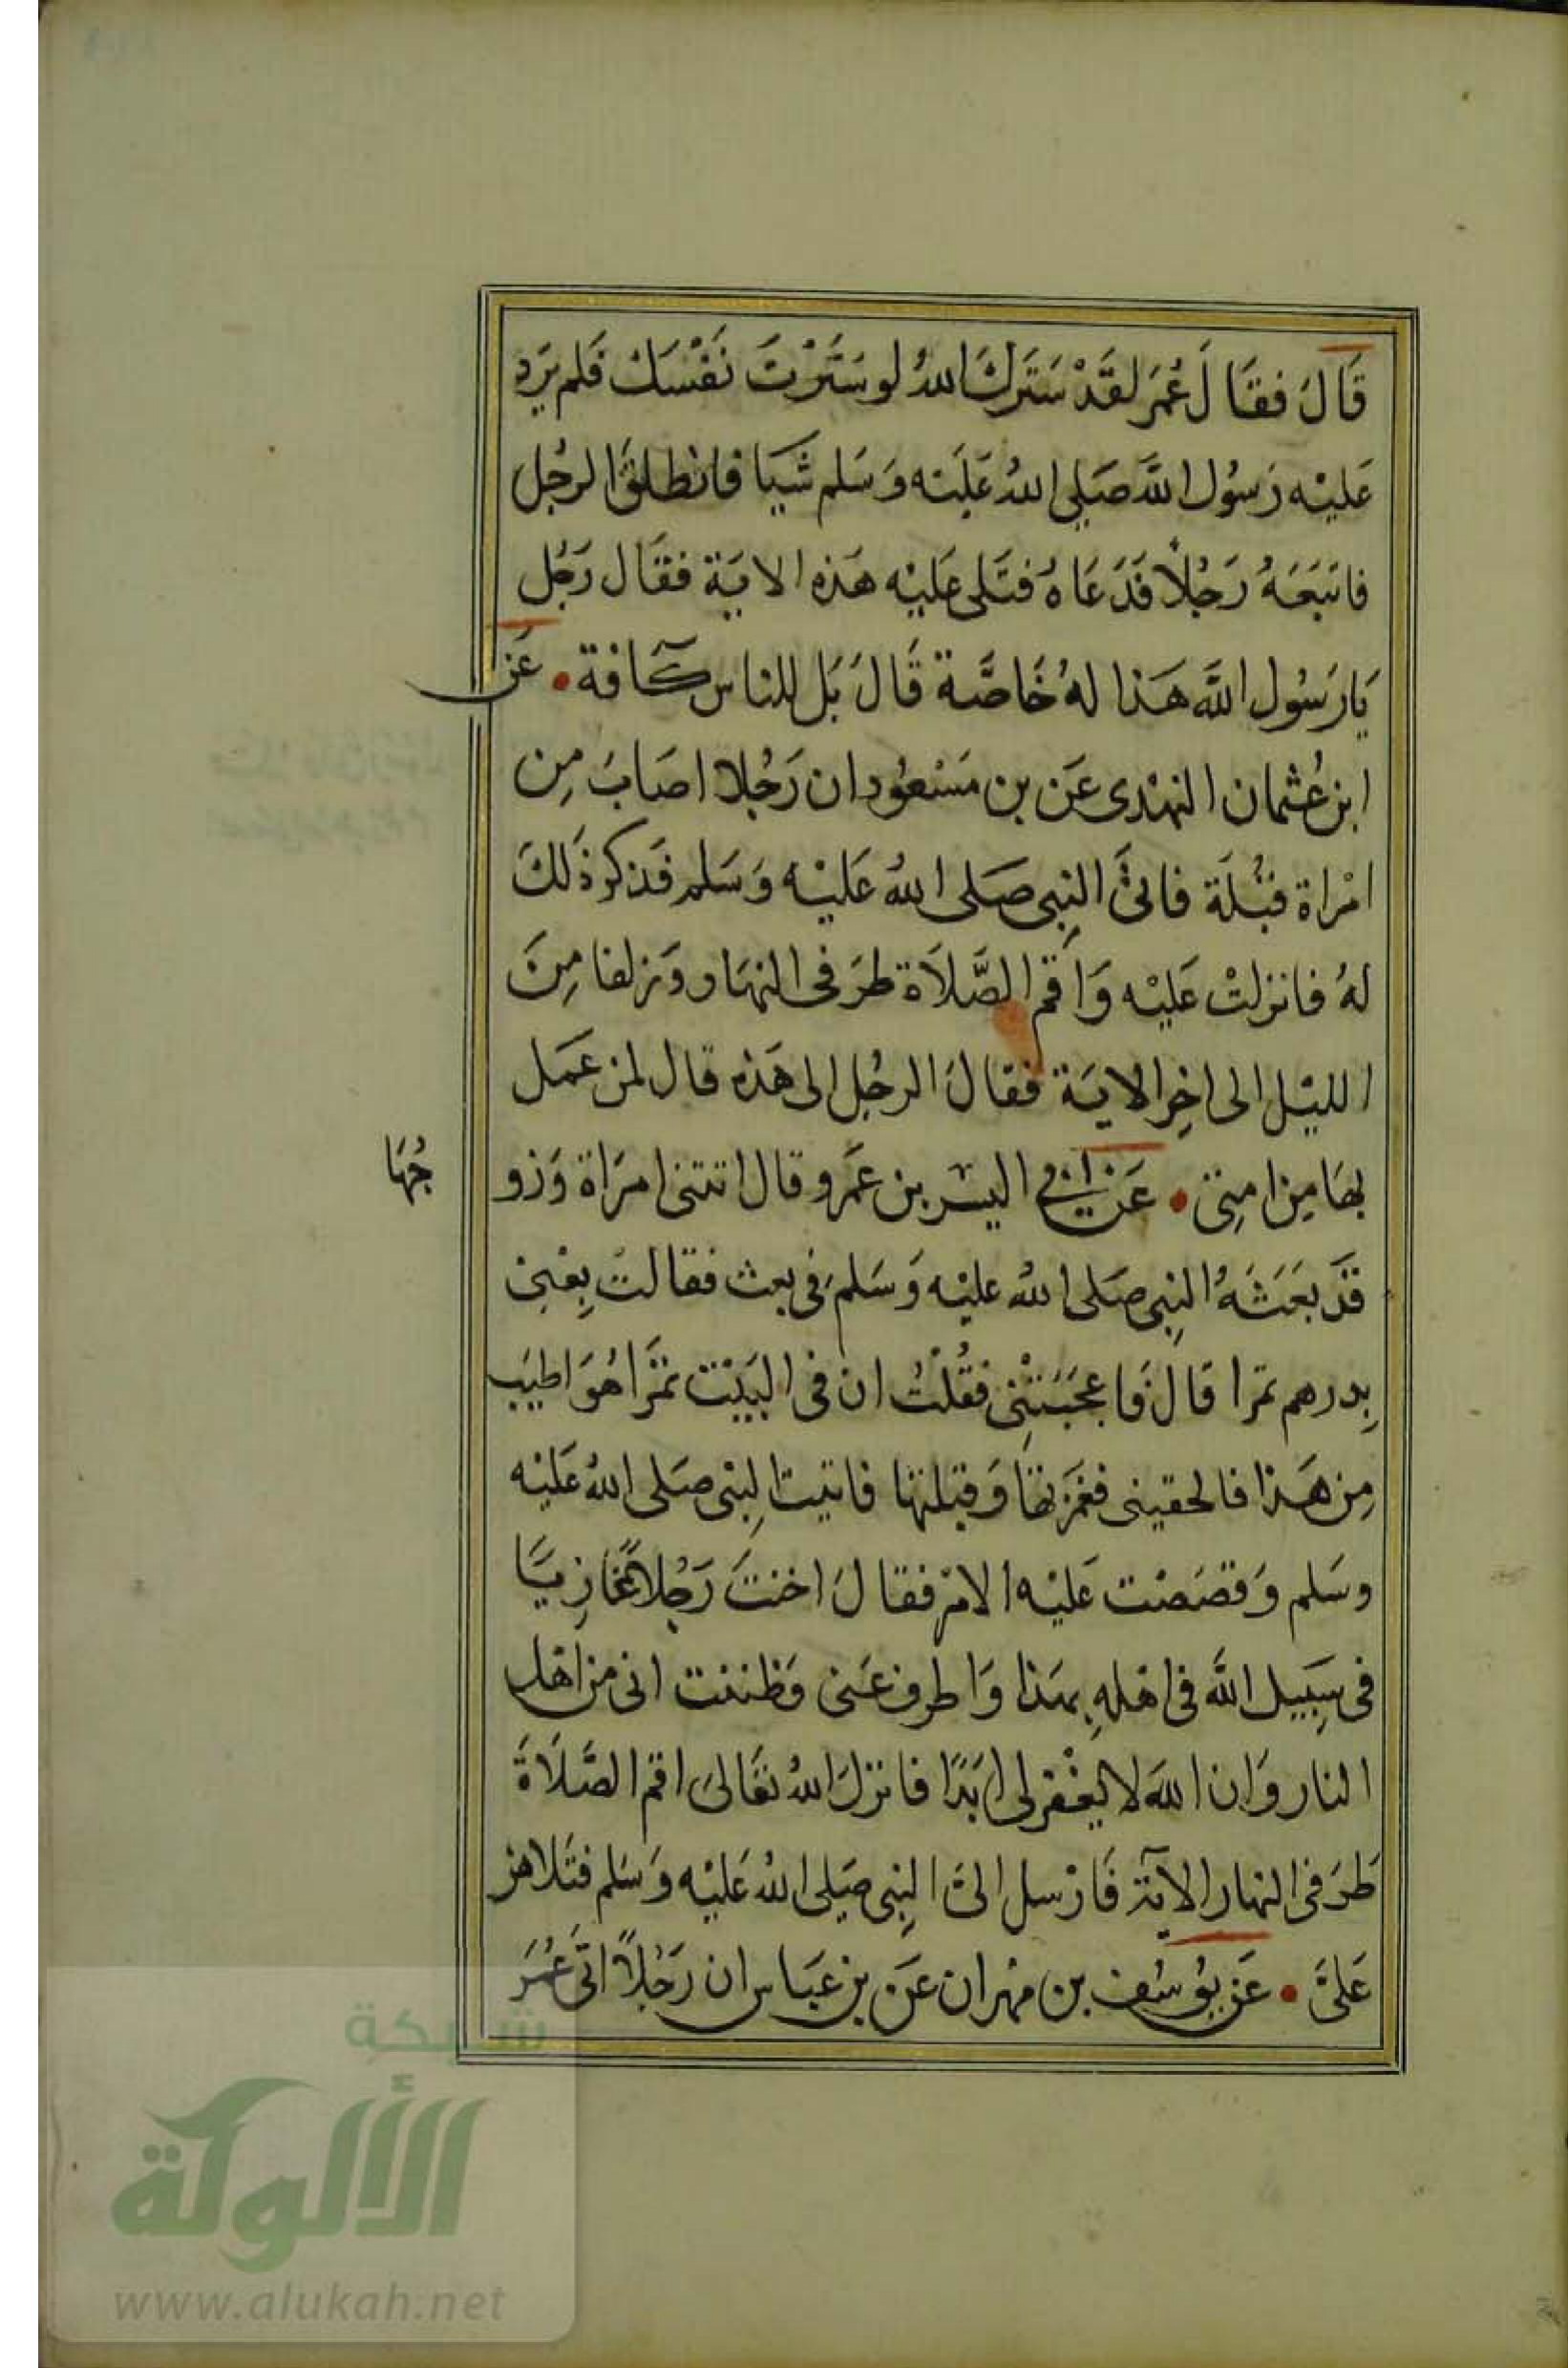 قَالَ فقَالَ عُمَر لقَدْ سَتَرَكَ اللهُ لو سَتَرْتَ نَفْسَكَ فَلم يَرَدِ
عَليْه رَسُول اللَّه صَلى اللهُ عَليْه وَسَلم شَيَا فانطلقَ الرجُل
فاتبَعَهُ رَجُلاً فَدَعَاهُ فتَلى عَليْه هَذه الايَة فقَال رَجُل
يَارَسُول اللَّه هَذا لهُ خَاصَّة قَالَ بَل للناس كآفة • عَن
ابن عُثمان النهْدى عَن بن مَسْعُود ان رَجُلا اصَابَ مِن
امْراة قبُلَة فاتىَ النِبى صَلى اللهُ عَليْه وَسَلم فَذكر ذَلكَ
لهُ فانزلتْ عَليْه وَاَقم الصَّلاَة طرَفى النهَار وَزلفا مِنَ
الليْل الى اخِر الايَة فقالَ الرجُل الى هَذه قال لمن عَمَل
بهَا مِن امِتى • عَن ابي اليسَر بن عَمرو قال اتتنى امرَاة وَزو
جُهَا
قَد بعَثَهُ النِبى صَلى اللهُ عليْه وَسَلمَ فى بعث فقالتَ بِعْنِى
بِدرهم تمرا قالَ فَاعجَبَتْنِى فقُلْتُ ان فى البَيْت تمْرَا هُوَ اطيَب
مِن هَذا فالحقينى فغَمَزتهَا وَقبّلتهَا فاتيتَ النِبى صَلى اللهُ عَليْه
وسَلم وَقصَصْت عَليْه الامْر فقالَ اخنتَ رَجُلاً غَازِيَّا
فى سَبِيل اللَّه فى اهْلهِ بهَذا وَاطرف عَنى وَظننت انى من اهل
النار وَان اللهَ لا يغْفر لى ابَدًا فانزلَ اللهُ تعَالىَ اقم الصَّلاَةَ
طرَفى النهار الآية فَارْسل الىَ النِبى صَلى اللهُ عَليْه وَسَلم فتَلاهن
عَلىَّ • عَن يوُسُف بن مهْران عَن بن عَبَاس ان رَجُلاً اتَى عُمَرَ
شبكة
الألوكة
www.alukah.net